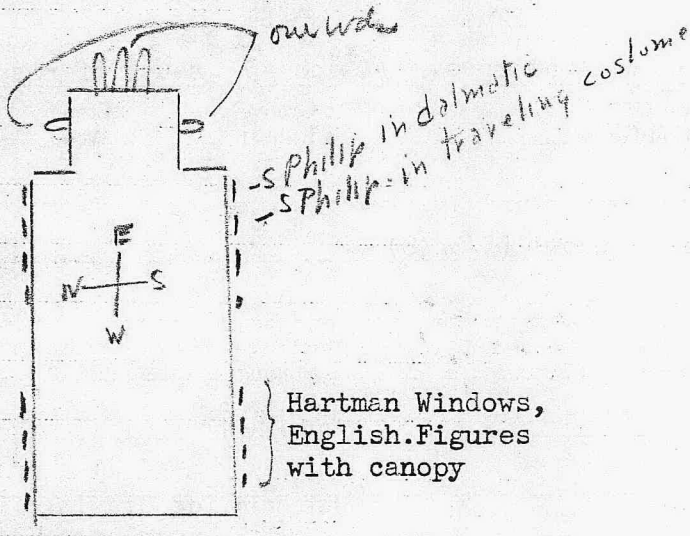 S Philip in dalmatic
S Philip in traveling costume
E
N S
W
Hartman Windows,
English.Figures
with canopy